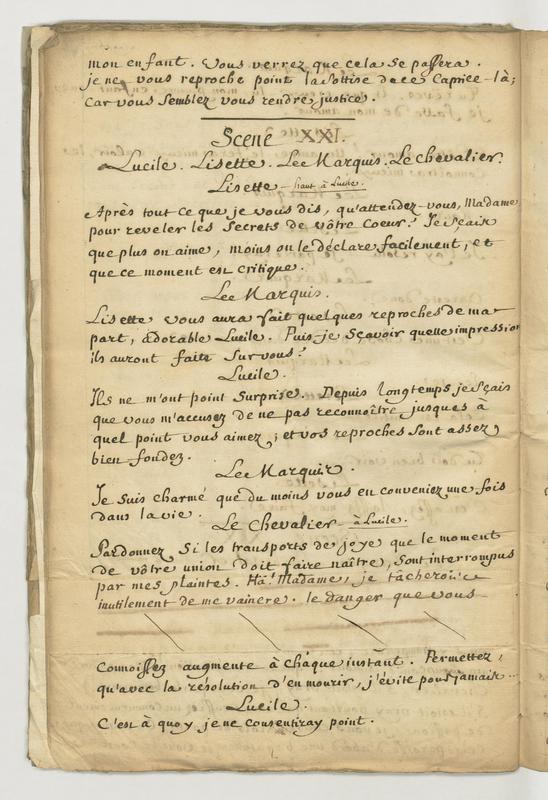 mon enfant. Vous verrez que cela se passera.
je ne vous reproche point la sottise de ce Caprice-là;
Car vous semblez vous rendre justice.
Scene XXI.
Lucile. Lisette. Le Marquis. Le Chevalier.
Lisette - haut à Lucile.
Après tout ce que je vous dis, qu'attendez-vous, Madame
pour reveler les Secrets de vôtre Coeur? Je sçais
que plus on aime, moins on le déclare facilement, et
que ce moment est critique.
Le Marquis.
Lisette vous aura fait quelques reproches de ma
part, adorable Lucile. Puis-je sçavoir quelle impression
ils auront faits sur vous?
Lucile.
Ils ne m'ont point surprise. Depuis longtemps je sçais
que vous m'accusez de ne pas reconnoître jusques à
quel point vous aimez; et vos reproches sont assez
bien fondez.
Le Marquis.
Je suis charmé que du moins vous en conveniez une fois
dans la vie.
Le Chevalier - à Lucile.
Pardonnez si les transports de joye que le moment
de vôtre union doit faire naître, sont interrompus
par mes plaintes. Ha! Madame, je tâcherois
inutilement de me vaincre. le danger que vous
Connoissez augmente à chaque instant. Permettez,
qu'avec la résolution d'en mourir, j'évite pour jamais...
Lucile.
C'est à quoy je ne consentiray point.